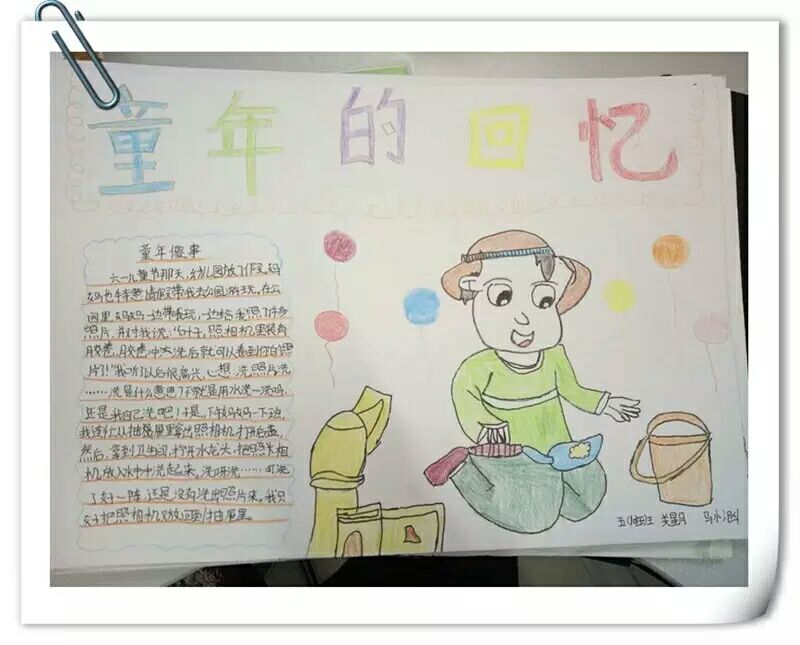 童年的回忆
童年傻事
六一儿童节那天,幼儿园放了假,妈
妈也特意请假带我去公园游玩。在公
园里,妈妈一边带我玩,一边给我照了许多
照片,并对我说:“叶子,照相机里装有
胶卷,胶卷冲洗后就可以看到你的照
片了!”我听以后很高兴,心想:洗照片,洗
……洗是什么意思?不就是用水洗一洗吗,
还是我自己洗吧!于是,下午妈妈一下动,
我连忙从抽屉里拿出照相机,打开后盖,
然后,拿到卫生间,打开水龙头,把照相
机放入水中洗起来。洗呀洗……可洗
了好一阵,还是没有洗出照片来。我只
好把照相机又放回到抽屉里。
五 班 关星月 马小